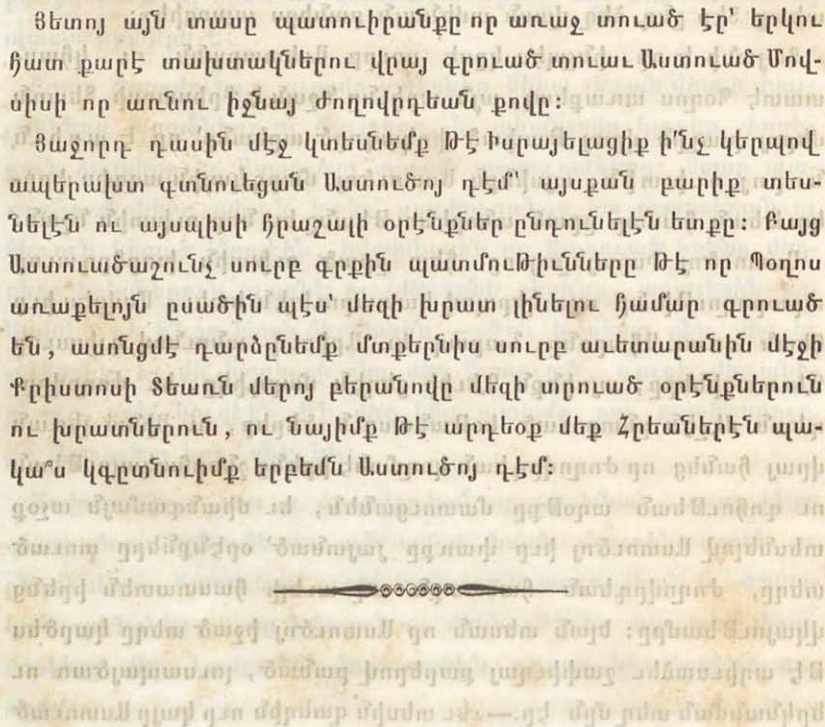 Յետոյ այն տասը պատուիրանքը որ առաջ տուած էր՝ երկու
հատ քարէ տախտակներու վրայ գրուած տուաւ Աստուած Մով-
սիսի որ առնու իջնայ ժողովրդեան քովը։
Յաջորդ դասին մէջ կտեսնեմք թէ Իսրայելացիք ի՛նչ կերպով
ապերախտ գտնուեցան Աստուծոյ դէմ՝ այսքան բարիք տես-
նելէն ու այսպիսի հրաշալի օրէնքներ ընդունելէն ետքը։ Բայց
Աստուածաշունչ սուրբ գրքին պատմութիւնները թէ որ Պօղոս
առաքելոյն ըսածին պէս՝ մեզի խրատ լինելու համար գրուած
են, ասոնցմէ դարձընեմք մտքերնիս սուրբ աւետարանին մէջի
Քրիստոսի Տեառն մերոյ բերանովը մեզի տրուած օրէնքներուն
ու խրատներուն, ու նայիմք թէ արդեօք մեք Հրեաներէն պա-
կա՞ս կգըտնուիմք երբեմն Աստուծոյ դէմ։